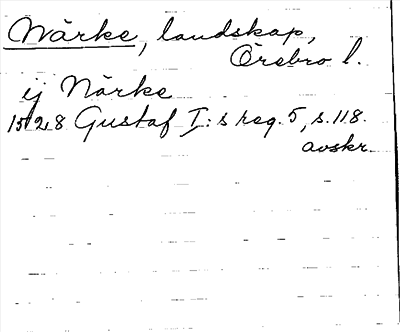 Närke, landskap,
Örebro l.
ij Närke
1528 Gustaf I:s reg. 5, s. 118.
avskr.